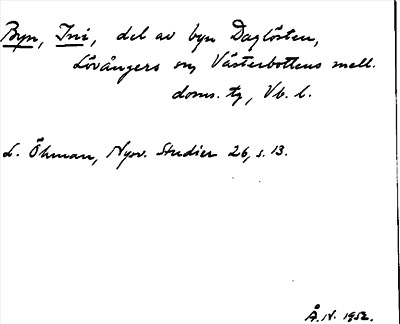 Byn, Ini, del av byn Daglösten,
Lövångers sn, Västerbottens mell.
doms. tg, Vb. l.
L. Öhman, Nysv. Studier 26, s. 13.
Å. N. 1952.